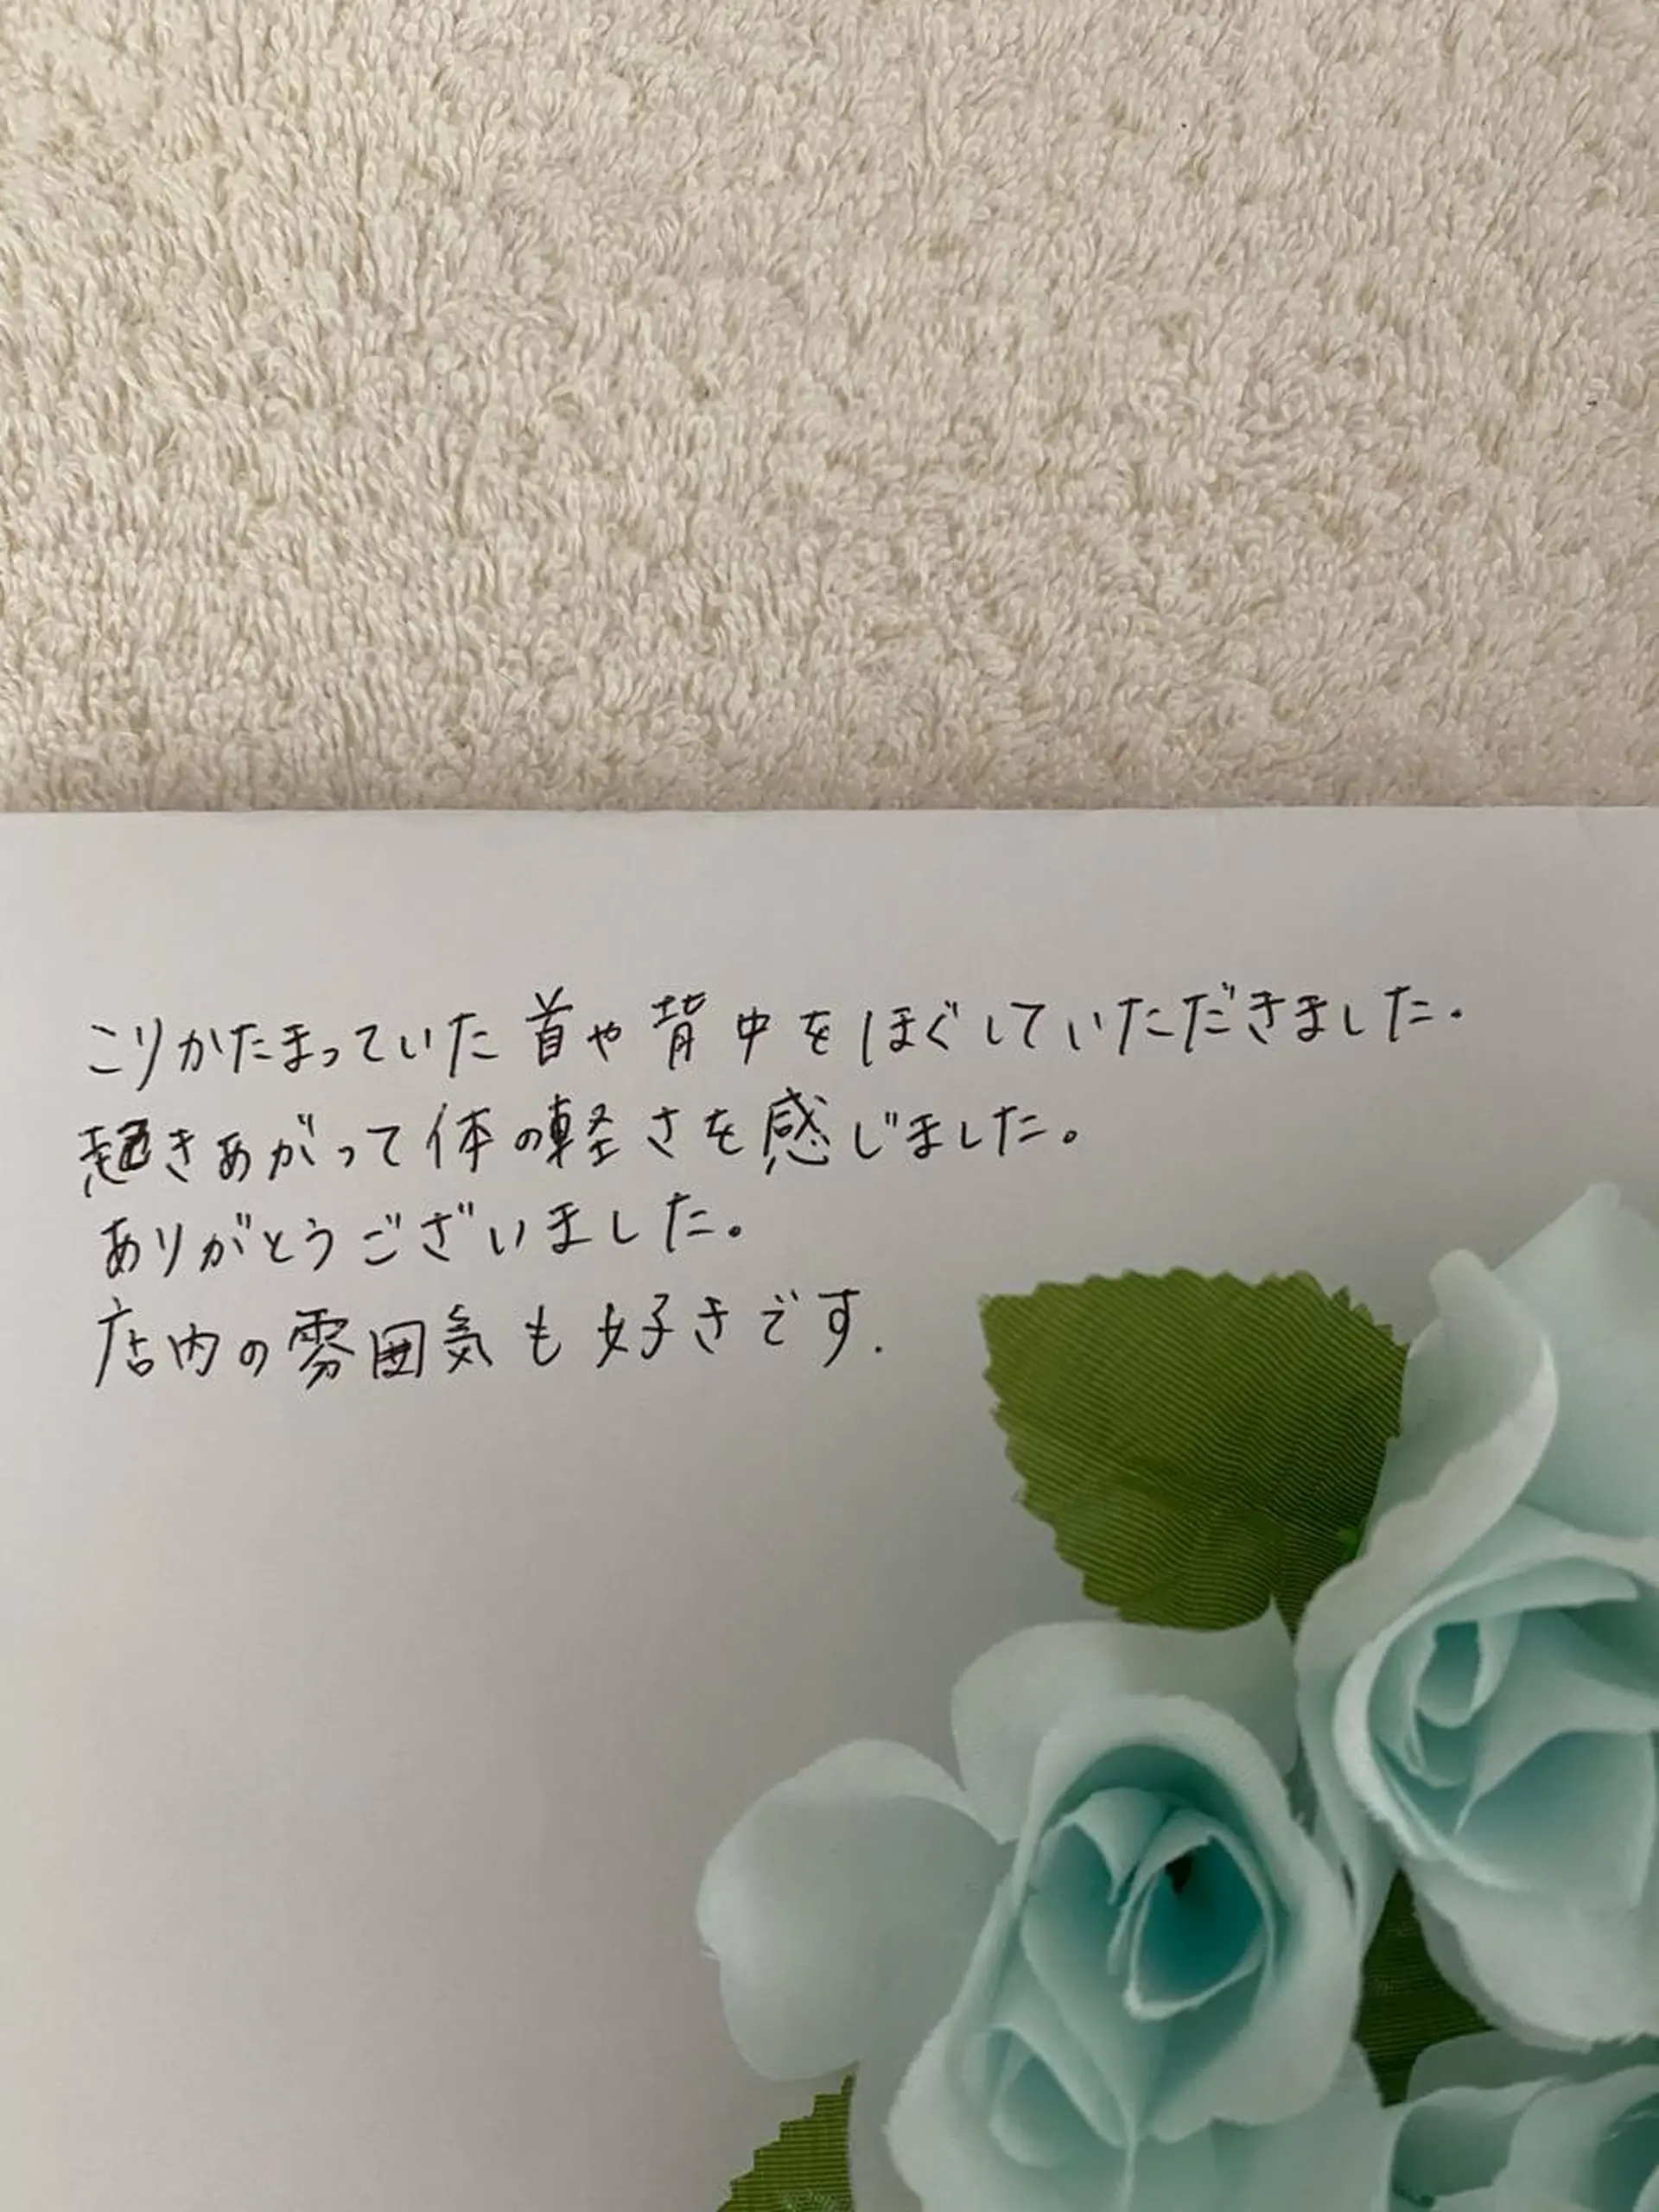 こりかたまっていた首や背中をほぐしていただきました.
起きあがって体の軽さを感じました。
ありがとうございました。
店内の雰囲気も好きです.